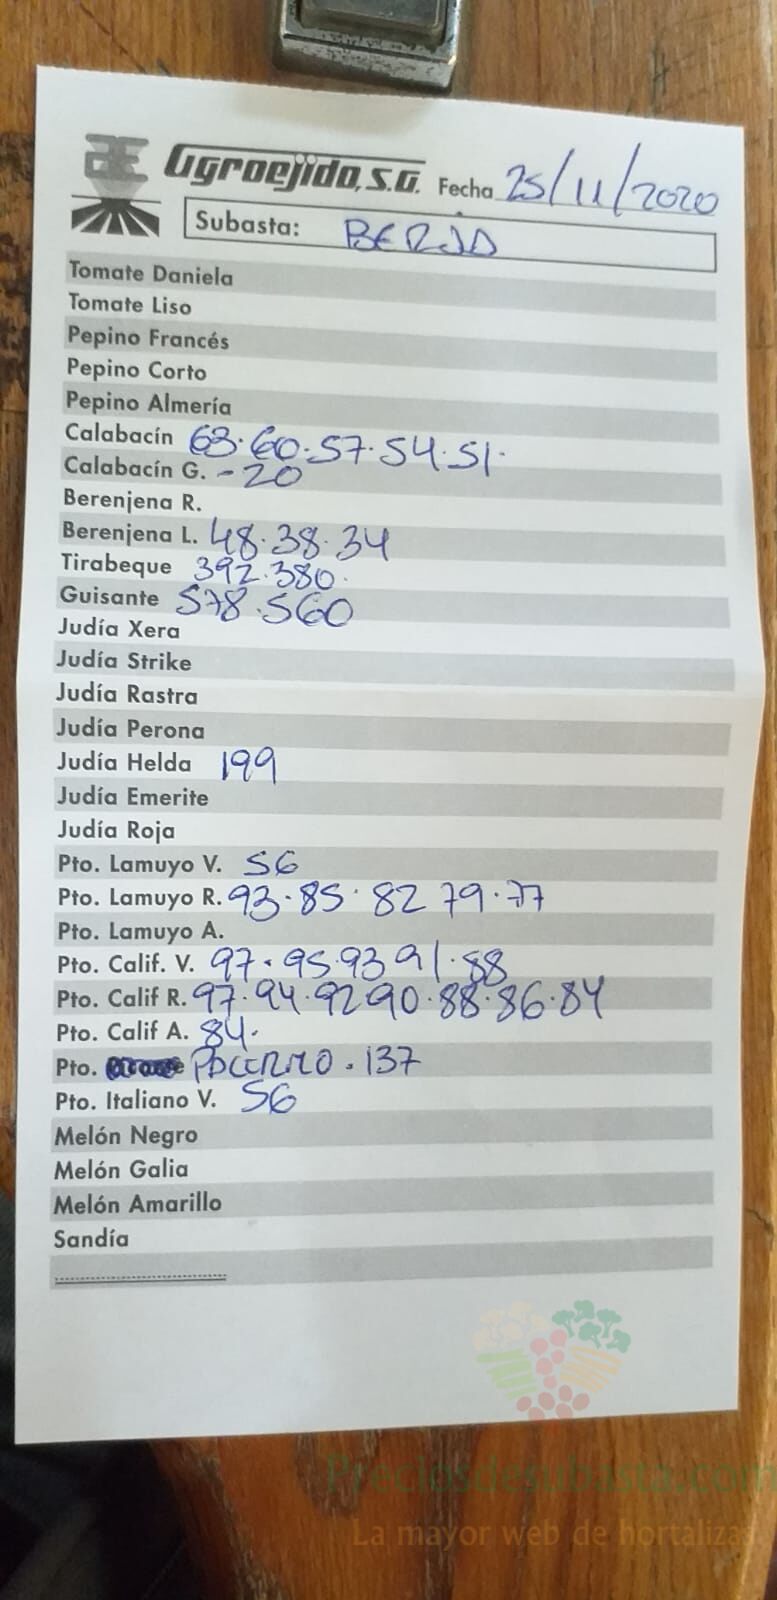 AE Agroejido, S.A. Fecha 25/11/2020
Subasta: BERJA
Tomate Daniela
Tomate Liso
Pepino Francés
Pepino Corto
Pepino Almería
Calabacín 63.60.57.54.51.
Calabacín G. -20
Berenjena R.
Berenjena L. 48.38.34
Tirabeque 392.380.
Guisante 578.560
Judía Xera
Judía Strike
Judía Rastra
Judía Perona
Judía Helda 199
Judía Emerite
Judía Roja
Pto. Lamuyo V. 56
Pto. Lamuyo R. 93.85.82 79.77
Pto. Lamuyo A.
Pto. Calif. V. 97.95.93 91.88
Pto. Calif R. 97.94.92 90.88.86.84
Pto. Calif A. 84.
Pto. . 137
Pto. Italiano V. 56
Melón Negro
Melón Galia
Melón Amarillo
Sandía
Preciosdesubasta.com
La mayor web de hortalizas